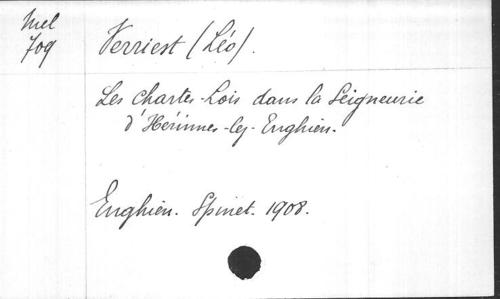 Mel
709
Verriest (Léo).
Les Chartes-Lois dans la Seigneurie
d'Hérinnes-lez-Enghien.
Enghien. Spinet. 1908.